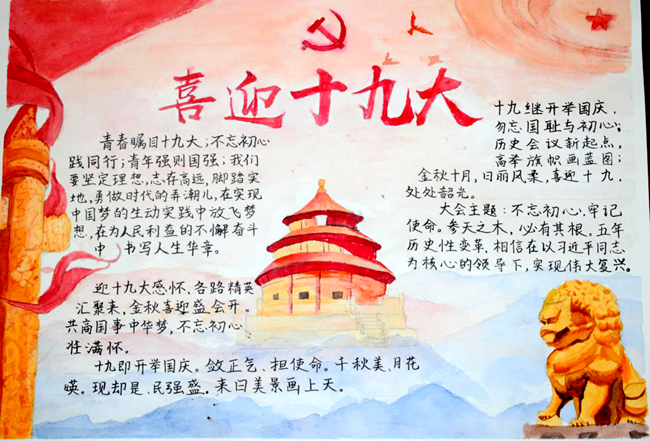 喜迎十九大
青春瞩目十九大；不忘初心
践同行；青年强则国强；我们
要坚定理想，志存高远，脚踏实
地，勇做时代的弄潮儿，在实现
中国梦的生动实践中放飞梦
想，在为人民利益的不懈奋斗
中，书写人生华章。
迎十九大感怀，各路精英
汇聚来，金秋喜迎盛会开。
共商国事中华梦，不忘初心
壮满怀。
十九即开举国庆。敛正气、担使命。千秋美、月花
暎。现却是、民强盛。来日美景画上天。
十九继开举国庆，
勿忘国耻与初心；
历史会议新起点，
高举旗帜画蓝图；
金秋十月，日丽风柔，喜迎十九，
处处韶光。
大会主题：不忘初心，牢记
使命。参天之木，必有其根，五年
历史性变革，相信在以习近平同志
为核心的领导下，实现伟大复兴。